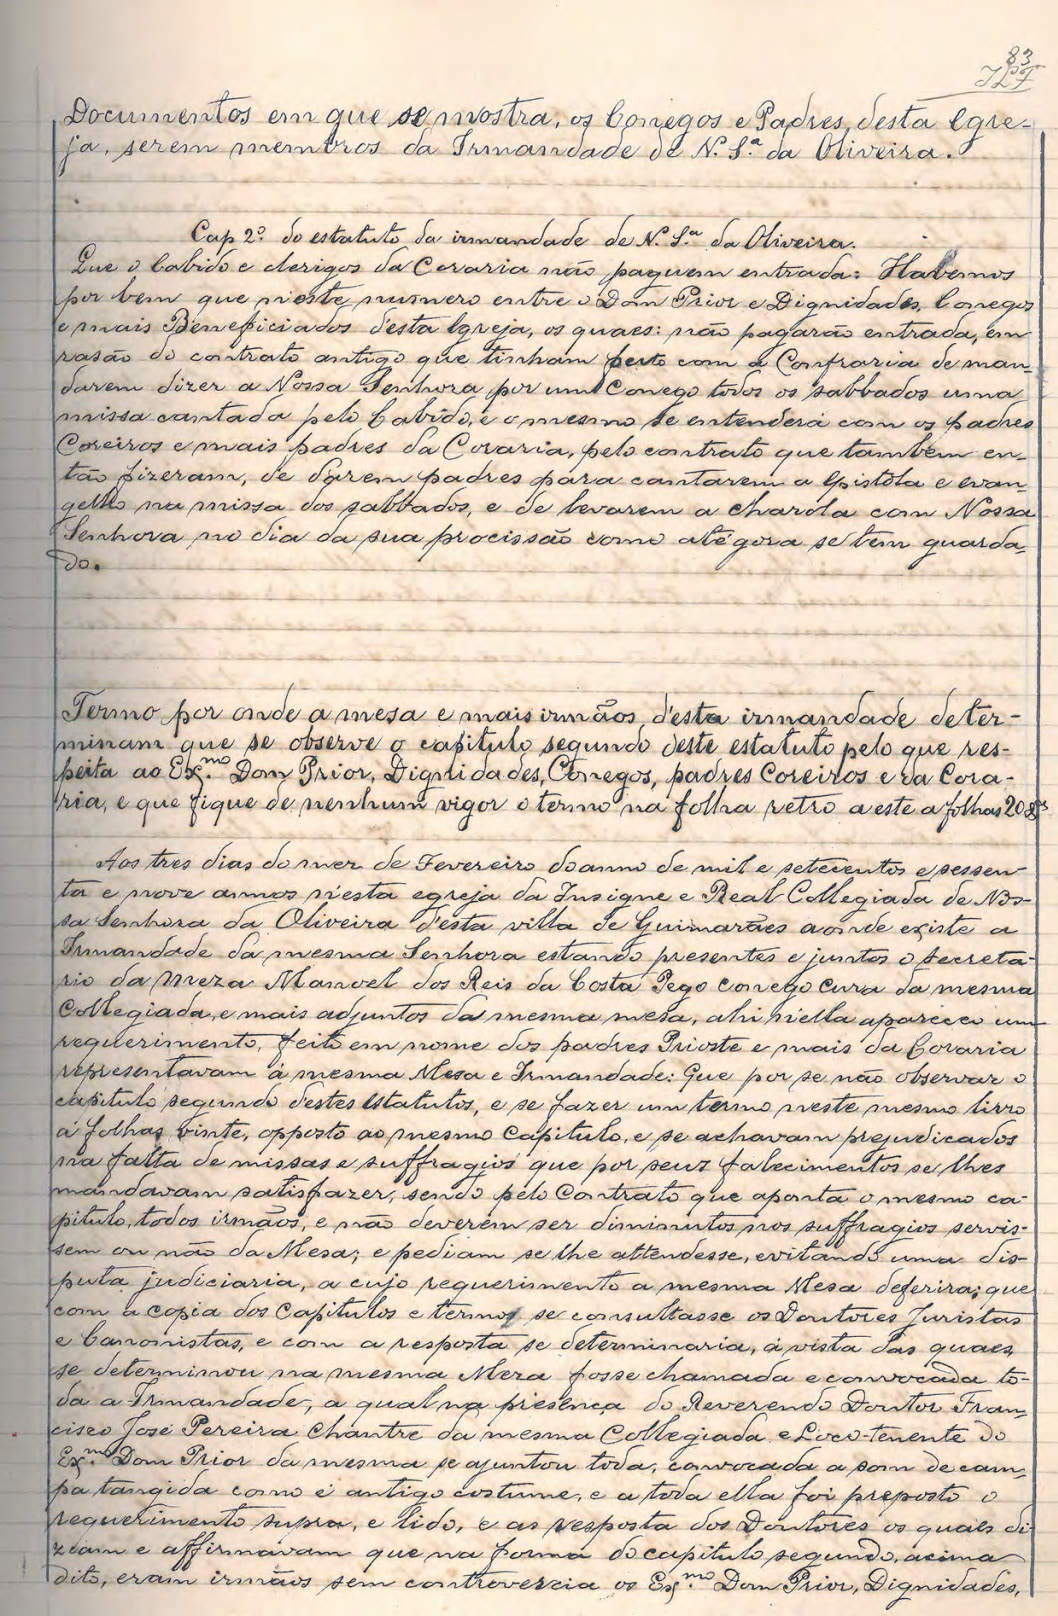 83
Documentos em que se mostra, os Conegos e Padres, desta Egre-
ja, serem membros da Irmandade de N. S.ª da Oliveira.
Cap 2º. do estatuto da irmandade de N. S.ª da Oliveira.
Que o Cabido e clerigos da Coraria não paguem entrada: Havemos
por bem que n'este numero entre o Dom Prior e Dignidades, Conegos
e mais Beneficiados desta Igreja, os quaes: não pagarão entrada, em
rasão do contrato antigo que tinham feito com a Confraria de man-
darem dizer a Nossa Senhora por um Conego todos os sabbados uma
missa cantada pelo Cabido, e o mesmo se entenderá com os padres
Coreiros e mais padres da Coraria, pelo contrato que tambem en-
tão fizeram, de darem padres para cantarem a Epistola e evan-
gelho na missa dos sabbados, e de levarem a charola com Nossa
Senhora no dia da sua procissão como atégora se tem guarda-
do.
Termo por onde a mesa e mais irmãos, d'esta irmandade deter-
minam que se observe o capitulo segundo deste estatuto pelo que res-
peita ao Ex.mo Dom Prior, Dignidades, Conegos, padres Coreiros e da Cora-
ria, e que fique de nenhum vigor o termo na folha retro a este a folhas 20
Aos tres dias do mez de Fevereiro do anno de mil e setecentos e sessen-
ta e nove annos n'esta egreja da Insigne e Real Collegiada de Nos-
sa Senhora da Oliveira d'esta villa de Guimarães aonde existe a
Irmandade da mesma Senhora estando presentes e juntos o Secreta-
rio da Meza Manoel dos Reis da Costa Pego conego Cura da mesma
Collegiada, e mais adjuntos da mesma mesa, ahi n'ella apareceo um
requerimento, feito em nome dos padres Prioste e mais da Coraria
representavam á mesma Mesa e Irmandade: Que por se não observar o
capitulo segundo destes Estatutos, e se fazer um termo neste mesmo livro
á folhas vinte, opposto ao mesmo Capitulo, e se achavam prejudicados
na falta de missas e suffragios que por seuz falecimentos se lhes
mandavam satisfazer, sendo pelo Contrato que aponta o mesmo ca-
pitulo, todos irmãos, e não deverem ser diminutos nos suffragios servis-
sem ou não da Mesa; e pediam se lhe attendesse, evitando uma dis-
puta judiciaria, a cujo requerimento a mesma Mesa deferira; que
com a copia dos Capitulos e termos se consultasse os Doutores Juristas
e Canonistas, e com a resposta se determinaria, á vista das quaes,
se determinou na mesma Meza fosse chamada e convocada to-
da a Irmandade, a qual na presença do Reverendo Doutor Fran-
cisco José Pereira Chantre da mesma Collegiada e Loco-tenente do
Ex.mo Dom Prior da mesma se ajuntou toda, convocada a som de cam-
pa tangida como é antigo costume, e a toda ella foi preposto o
requerimento supra, e lido, e as resposta dos Doutores os quaes di
ziam e affirmavam que na forma do capitulo segundo, acima
dito, eram irmãos sem controversia os Ex.mo Dom Prior, Dignidades,